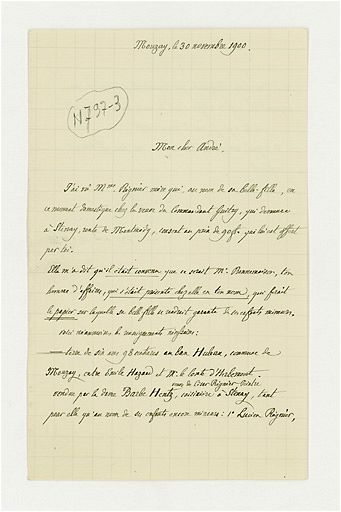 Mouzay, le 30 novembre 1900.
N797-3
Mon cher André,
J'ai vu Mme Régnier mère qui, au nom de sa belle-fille, en
ce moment domestique chez la veuve du Commandant Guitoy, qui demeure
à Stenay, route de Montmédy, consent au prix de par toi est offert
par toi.
Elle m'a dit qu'il était convenu que ce serait Mr. ton
homme d'affaires, qui s'était présenté chez elle en ton nom, qui ferait
le papier sur laquelle sa belle fille se rendrait garante de ses enfants mineurs.
Voici néanmoins les renseignements
terre de six ares 98 centiares au ban Huban, commune de
Mouzay, entre Emile Hazard et Mr. le Comte d'Herbemont.
veuve de César Régnier
vendue par la dame Barbe Hentz, à Stenay, tant
pour elle qu'au nom de ses enfants encore mineurs : 1° Lucien Régnier,